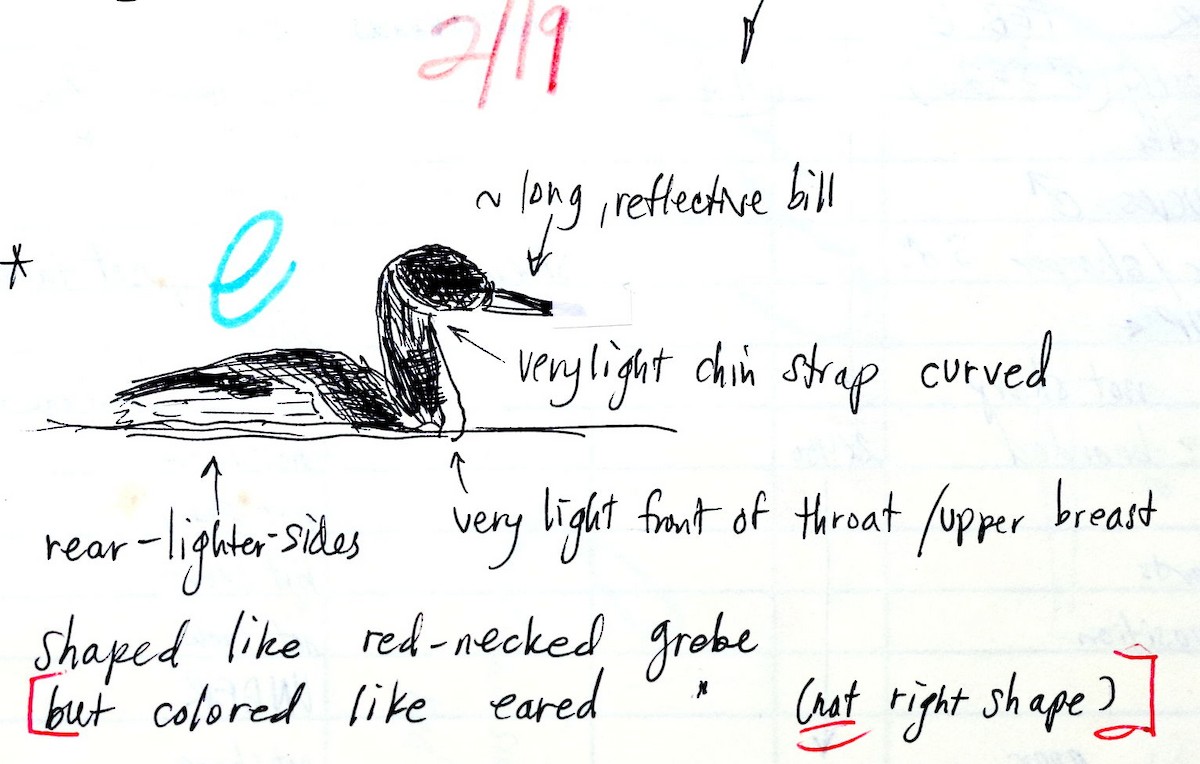 2/19
~ long, reflective bill
*
e
very light chin strap curved
very light front of throat / upper breast
rear-lighter-sides
shaped like red-necked grebe
[but colored like eared " (not right shape)]